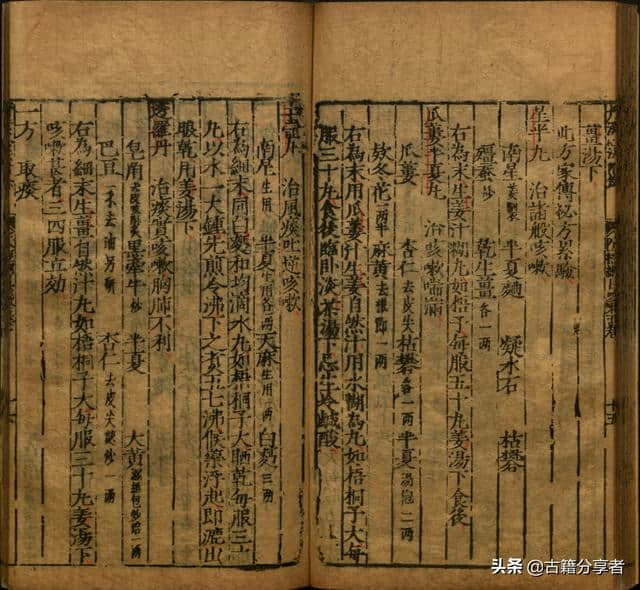 薑湯下
此方家傳祕方累驗
星平丸 治諸般咳嗽
南星 姜製 半夏麯 凝水石 枯礬
殭蚕炒 乾生薑各一兩
右為末生姜汁糊丸如梧子每服五十丸姜湯下食後
瓜蔞半夏丸 治咳嗽喘滿
瓜蔞 杏仁去皮尖 枯礬各一兩 半夏湯泡二兩
欵冬花兩半 麻黃去根節一兩
右為末用瓜蔞汁生姜自然汁用水糊為丸如梧桐子大每
服三十丸食後臨卧淡茶湯下忌生冷鹹酸
玉壷丸 治風痰吐逆咳嗽
南星生用 半夏生用各二兩 天麻生用一兩 白麪三兩
右為細末同白麪和均滴水丸如梧桐子大晒乾每服三十
丸以水一大鍾先煎令沸下之煑五七沸候藥浮起即漉出
眼乾用姜湯下
透羅丹 治痰實咳嗽胸膈不利
皂角 黑牽牛炒 半夏 大黃
巴豆一禾去油另研 杏仁去皮尖麩炒一兩
右為細末生薑自然汁丸如梧桐子大每服三十丸姜湯下
咳嗽甚者三四服立効
一方 取痰
十五
头条 @古籍分享者